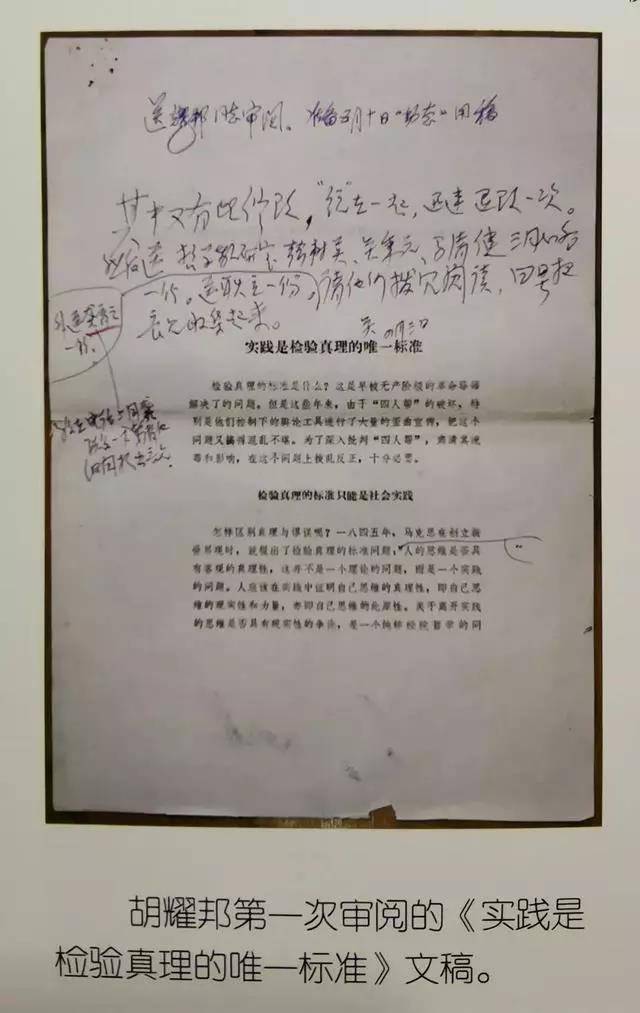 送耀邦同志审阅。准备五月十日“动态”用稿
其中又有些修改，“统”在一起，迅速退改一次。
一份。送耿立一份。请他们拨冗阅读，四号把
意见收集起来。
吴
一份。
实践是检验真理的唯一标准
检验真理的标准是什么？这是早被无产阶级的革命导师
解决了的问题。但是这些年来，由于“四人帮”的破坏，特
别是他们控制下的舆论工具进行了大量的歪曲宣传，把这个
问题又搞得混乱不堪。为了深入批判“四人帮”，肃清其流
毒和影响，在这个问题上拨乱反正，十分必要。
检验真理的标准只能是社会实践
怎样区别真理与谬误呢？一八四五年，马克思在创立新
世界观时，就提出了检验真理的标准问题：“人的思维是否具
有客观的真理性，这并不是一个理论的问题，而是一个实践
的问题。人应该在实践中证明自己思维的真理性，即自己思
维的现实性和力量，亦即自己思维的此岸性。关于离开实践
的思维是否具有现实性的争论，是一个纯粹经院哲学的问
胡耀邦第一次审阅的《实践是
检验真理的唯一标准》文稿。